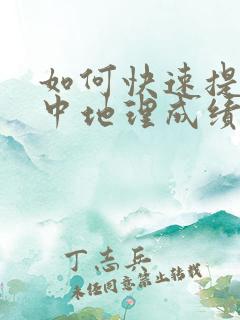 如何快速提
中地理成绩
丁志兵
未经同意禁止转载